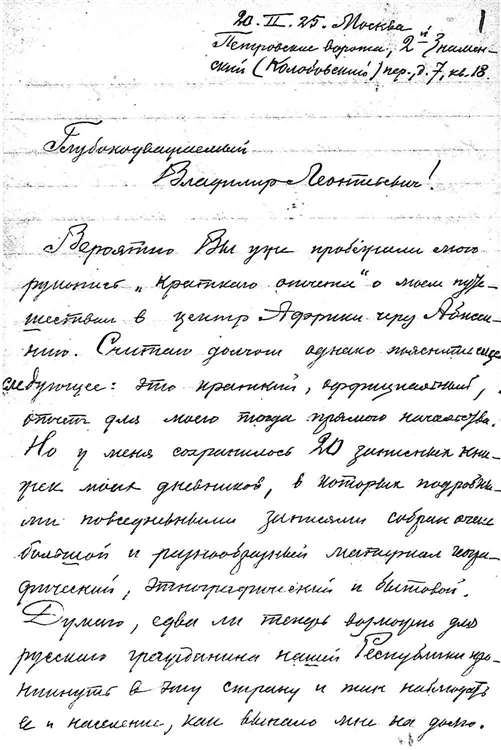 1
20.II.25. Москва
Петровские ворота, 2-й Знамен-
ский (Колобовский) пер., д. 7, кв. 18.
Глубокоуважаемый
Владимир Леонтьевич!
Вероятно Вы уже пробежали мою
рукопись „Краткого отчета“ о моем путе-
шествии в центр Африки через Абисси-
нию. Считаю долгом однако пояснить еще
следующее: это краткий, оффициальный,
отчет для моего тогда прямого начальства.
Но у меня сохранилось 20 записных кни-
жек моих дневников, в которых подробны-
ми повседневными записями собран очень
большой и разнообразный материал геогра-
фический, этнографический и бытовой.
Думаю, едва ли теперь возможно для
русского гражданина нашей Республики про-
никнуть в эту страну и так наблюдать
ее и население, как выпало мне на долю.